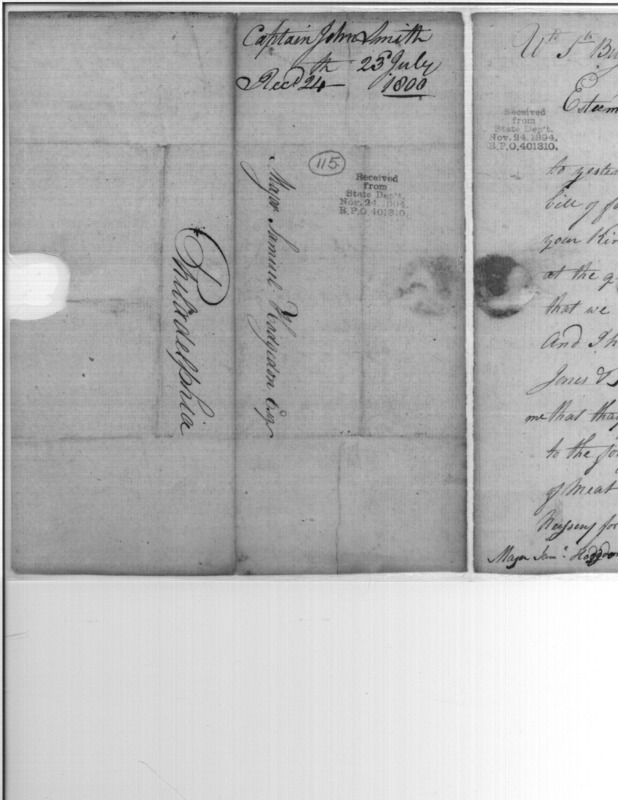 Captain John Smith
23d July
Recd 24th 1800
115
Received
from
State Dep't.
Nov. 24, 1894.
R.P.O. 401310.
Major Samuel Hodgdon Esqr
Philadelphia
Esteem
Received
from
State Dep't.
Nov. 24, 1894.
R.P.O. 401310.
to yeste
bill of
your Kin
at the
that we
And I h
Jones &
me that
to the
of Meat
for
Major Saml. Hodgdon